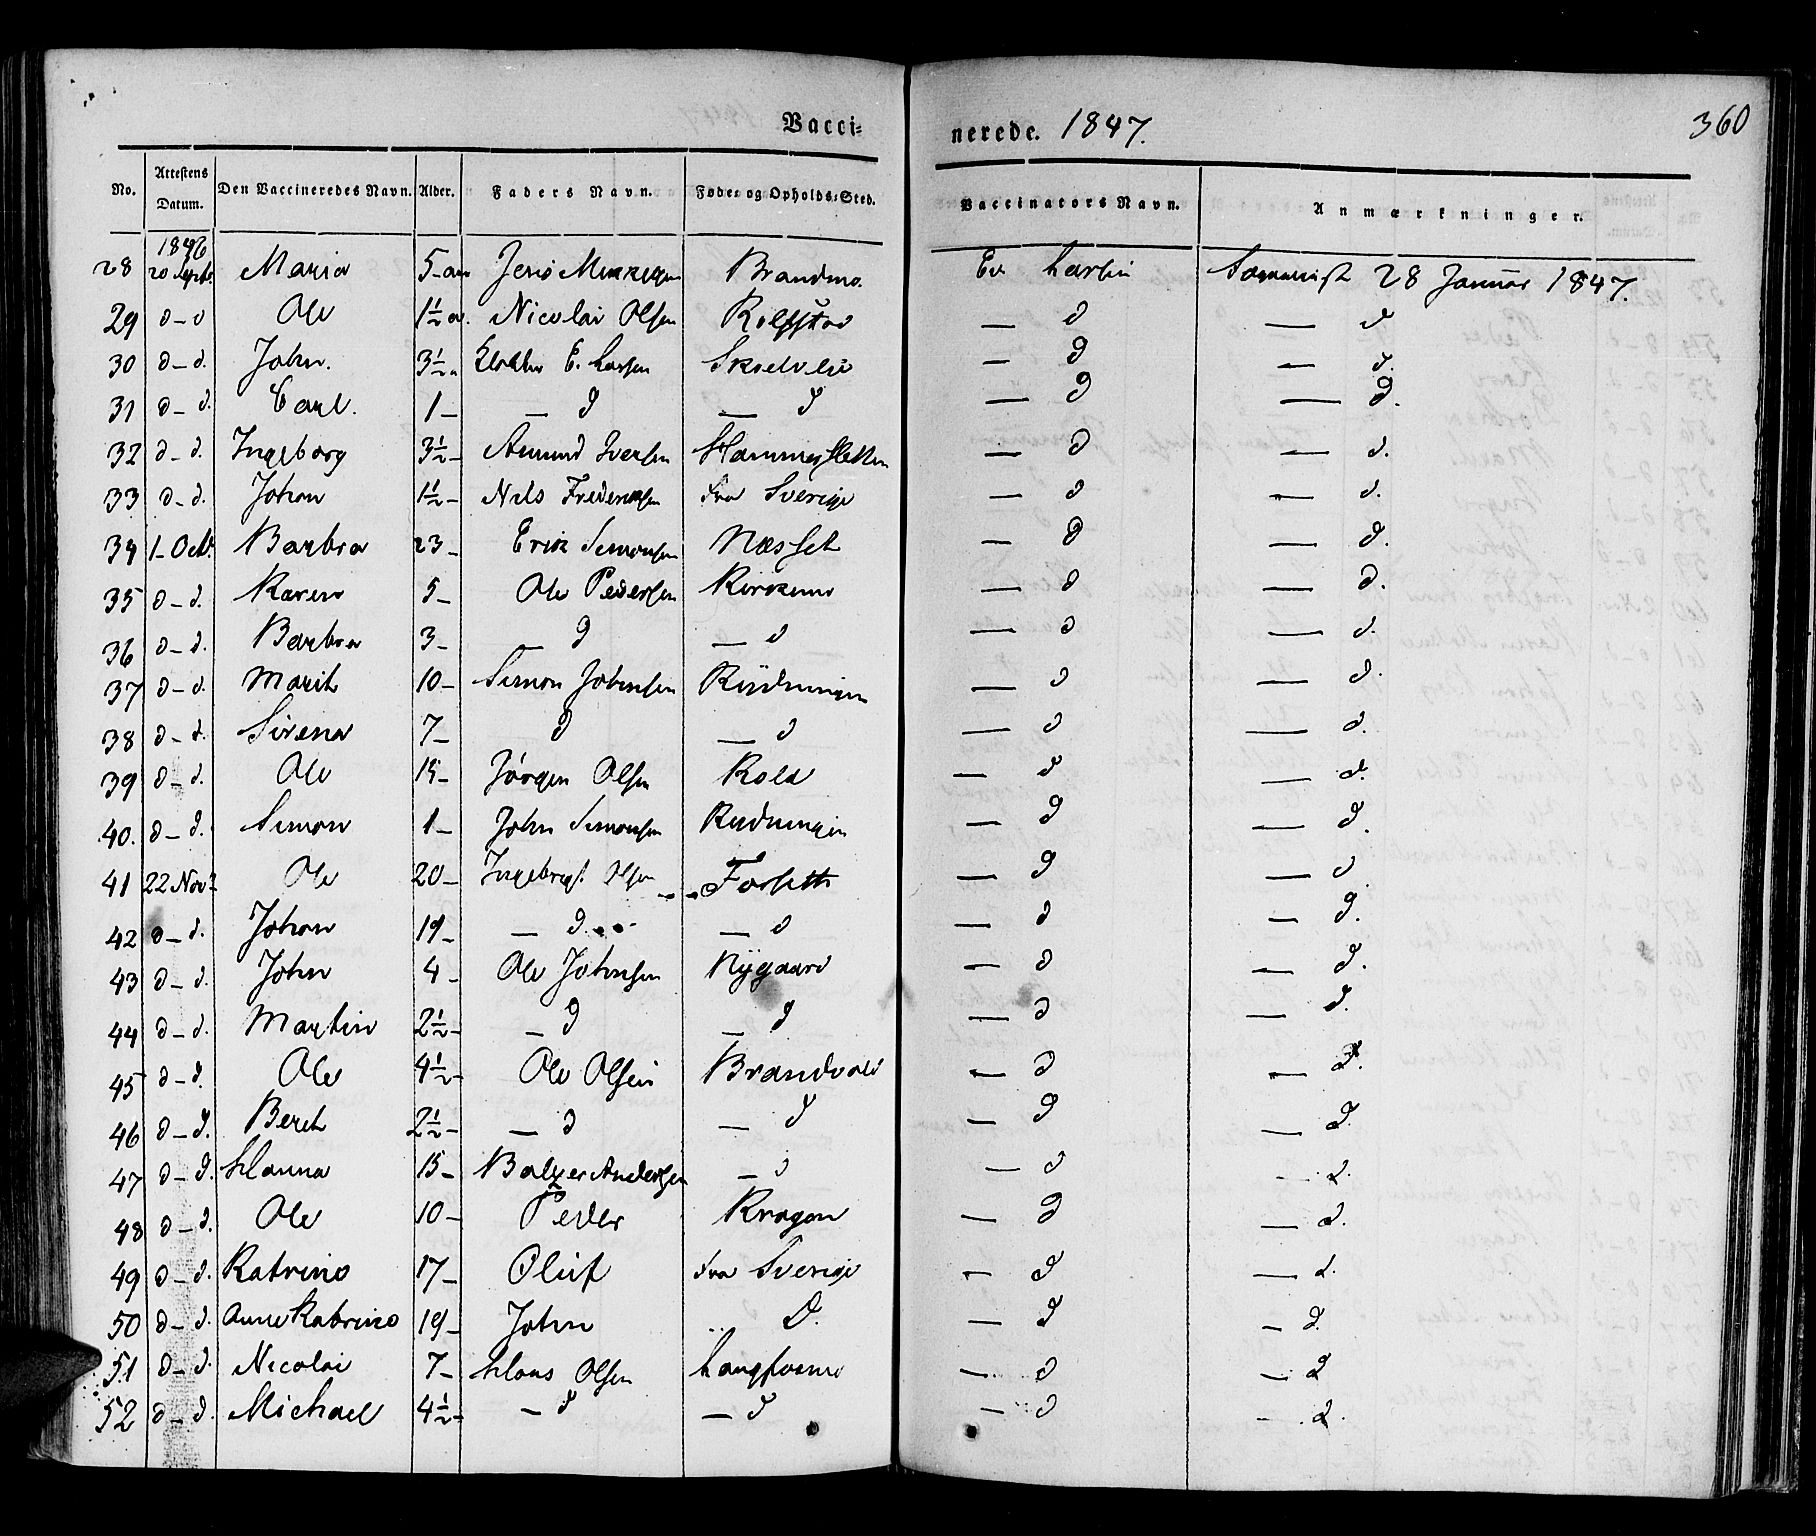 Vacci-
nerede. 1847.
360
No. Attestens Datum. Den Vaccineredes Navn. Alder. Faders Navn. Føde- og Opholds-Sted. Vaccinators Navn. Anmærkninger.
1846
28 20 Septb. Maria 5 - Jens Brandmo. 28 Januar 1847.
29 d - d Ole 1½ a. Nicolai Olsen — d — d
30 d - d. John. 3½ E. — d — d.
31 d - d. Carl. 1 - — d — d — d — d.
32 d - d. Ingeborg 3½ - Amund Iversen — d — d.
33 d - d. Johan 1½ - Nils Fredriksen fra Sverige — d — d.
34 1 - Octb. Barbra 23 - Erik Simonsen Næsset — d — d.
35 d - d. Karen 5 - Ole Pedersen — d — d.
36 d - d. Barbra 3 - — d — d — d — d.
37 d - d. Marit 10 - Simon Johnsen Rüdningen — d — d.
38 d - d. Sirena 7 - d — d — d — d.
39 d - d. Ole 15 - Jørgen Olsen Kold — d — d.
40. d - d. Simon 1 - John Simonsen Rudningen — d — d.
41 22 Novb. Ole 20 - Ingebrigt Olsen Forseth — d — d
42 d - d. Johan 19 - — d — d — d — d.
43 d - d. John 4 - Ole Johnsen Nÿgaard — d — d.
44 d - d. Martin 2½ - — d — d — d — d.
45 d - d. Ole 4½ - Ole Olsen Brandvold — d — d.
46 d - d. Beret 2½ - — d — d — d — d.
47 d - d. Hanna 15 - Balzer Andersen — d — d — d.
48 d - d. Ole 10 - Peder Kragan — d — d.
49 d - d. Katrine 17 - Oluf fra Sverige — d — d.
50 d - d. Anne Katrine 19 - John D. — d — d.
51 d - d. Nicolai 7 - Hans Olsen — d — d
52 d - d. Michael 4½ - — d — d — d — d.